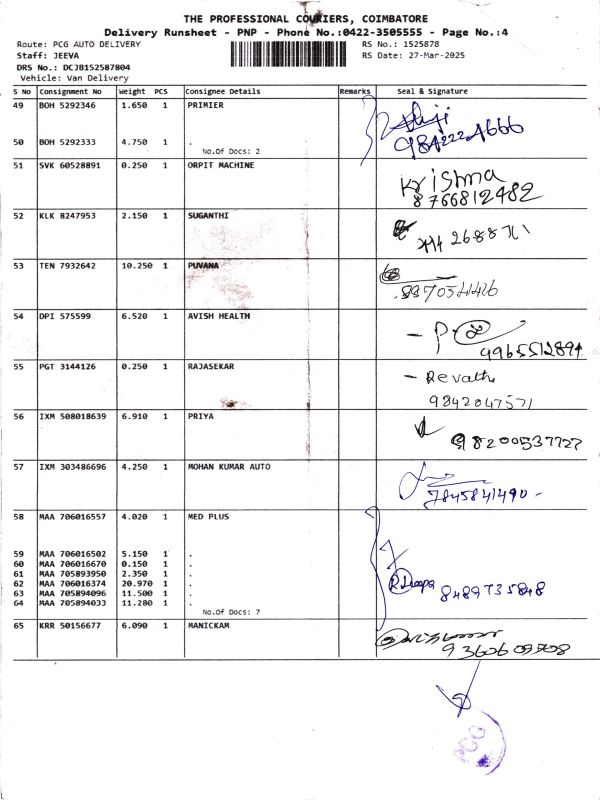 THE PROFESSIONAL COURIERS, COIMBATORE
Delivery Runsheet - PNP - Phone No.:0422-3505555 - Page No.:4
Route: PCG AUTO DELIVERY RS No.: 1525878
Staff: JEEVA RS Date: 27-Mar-2025
DRS No.: DCJB152587804
Vehicle: Van Delivery
S No Consignment No Weight PCS Consignee Details Remarks Seal & Signature
49 BOH 5292346 1.650 1 PRIMIER
50 BOH 5292333 4.750 1 .
No.Of Docs: 2
51 SVK 60528891 0.250 1 ORPIT MACHINE
Krishna
8766812482
52 KLK 8247953 2.150 1 SUGANTHI
53 TEN 7932642 10.250 1 PUVANA
54 DPI 575599 6.520 1 AVISH HEALTH
55 PGT 3144126 0.250 1 RAJASEKAR
- Revathi
9842047571
56 IXM 508018639 6.910 1 PRIYA
98200537727
57 IXM 303486696 4.250 1 MOHAN KUMAR AUTO
7845841490 -
58 MAA 706016557 4.020 1 MED PLUS
59 MAA 706016502 5.150 1 .
60 MAA 706016670 0.150 1 .
61 MAA 705893950 2.350 1 .
62 MAA 706016374 20.970 1 .
63 MAA 705894096 11.500 1 .
64 MAA 705894033 11.280 1 .
8489735848
No.Of Docs: 7
65 KRR 50156677 6.090 1 MANICKAM
PCG